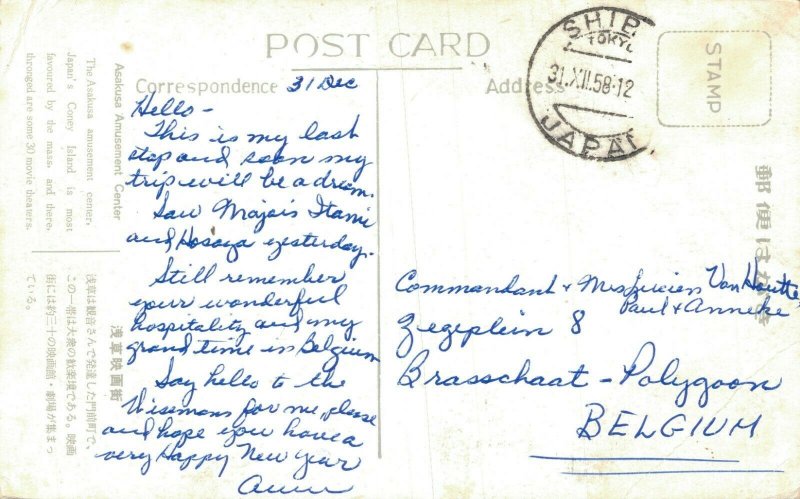 POST CARD
Correspondence
Address
STAMP
SHIB
TOKYO
31.XII.58-12
JAPAN
郵便はがき
31 Dec
Hello-
This is my last
stop and soon my
trip will be a dream.
Saw Majors Itami
and Hosoya yesterday.
Still remember
your wonderful
hospitality and my
grand time in Belgium
Say hello to the
Wisemans for me, please
and hope you have a
very Happy New Year
Commandant + Mrs Lucien Van Houtte
Paul + Anneke
Zegeplein 8
Brasschaat - Polygoon
BELGIUM
Asakusa Amusement Center
The Asakusa amusement center,
Japan's Coney Island is most
favoured by the mass, and there,
thronged are some 30 movie theaters.
浅草映画街
浅草は観音さんで発達した門前町で、
この一帯は大衆の歓楽境である。映画
街には約三十の映画館・劇場が集まっ
ている。